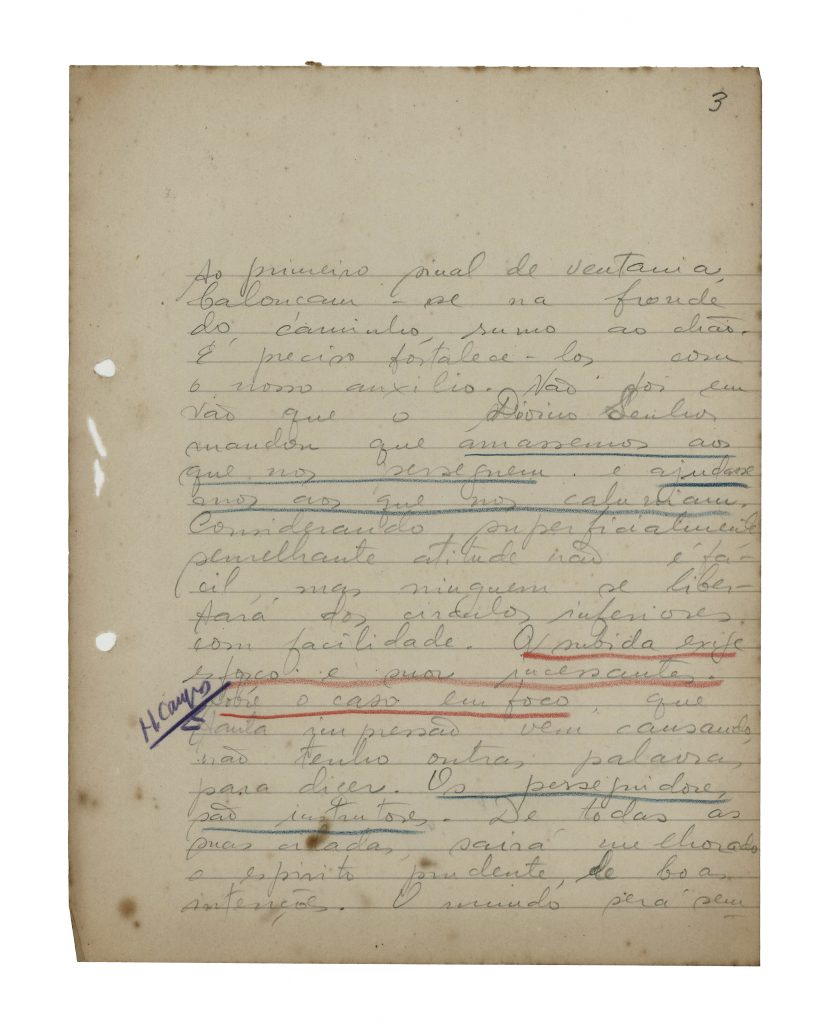 3
Ao primeiro sinal de ventania,
balonçam-se na fronde
do caminho, rumo ao chão.
É preciso fortalece-los com
o nosso auxilio. Não foi em
vão que o Divino Senhor
mandou que amassemos aos
que nos perseguem e ajudasse
mos aos que nos caluniam.
Considerando superficialmente
semelhante atitude não é fá-
cil, mas ninguem se liber-
tará dos circulos inferiores
com facilidade. A subida exige
esforço e suor incessantes.
Sobre o caso em foco, que
tanta impressão vem causando,
não tenho outras palavras
para dizer. Os perseguidores
são instrutores. De todas as
suas ciladas, sairá melhorado
o espirito prudente, de boas
intenções. O mundo será sem
H. Campos